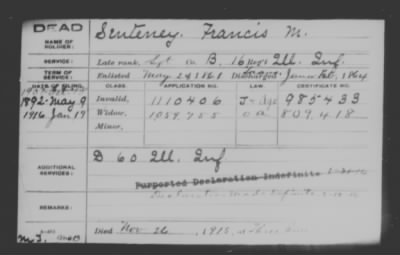 DEAD
NAME OF SOLDIER: Senteney, Francis M.
SERVICE: Late rank, Sgt Co B, 16 Reg't Ill. Inf.
TERM OF SERVICE: Enlisted May 24 1861 Discharged 1864
DATE OF FILING. CLASS. APPLICATION NO. LAW. CERTIFICATE NO.
1892-May 9 Invalid, 1110406 985433
1916 Jan 17 Widow, 1059755 809418
Minor,
ADDITIONAL SERVICES: D 60 Ill. Inf
Purported Declaration Indefinite
REMARKS:
Died Nov 26, 1915,